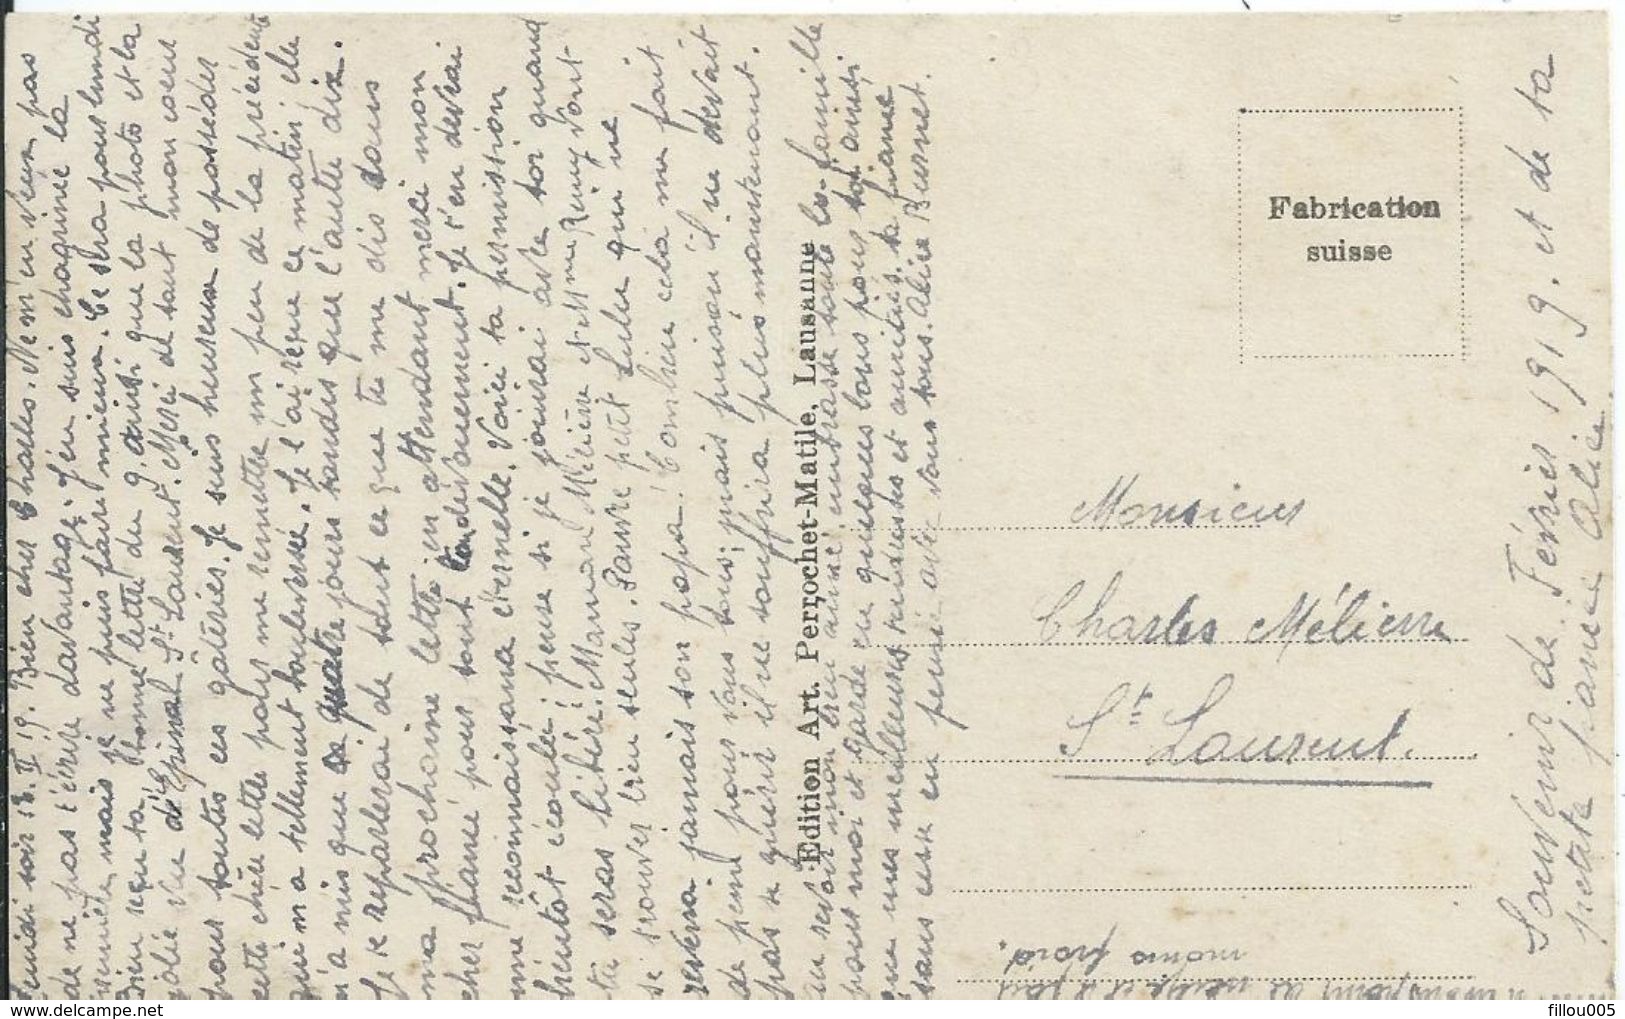 Lundi soir 18. II 19. Bien cher Charles. Ne m'en veux pas
de ne pas t'écrire davantage, j'en suis chagrinée la
première mais je ne puis faire mieux. Ce sera pour lundi
Bien reçu ta bonne lettre du 9 ainsi que la photo et la
jolie vue d'Epinal St Laurent. Merci de tout mon cœur
pour toutes ces gâteries. Je suis heureuse de posséder
cette chère petite pour me remettre un peu de la précédente
qui m'a tellement boulversée. Je l'ai reçue ce matin elle
n'a mis que quatre jours tandis que l'autre dix.
Je te reparlerai de tout ce que tu me dis dans
ma prochaine lettre en attendant merci mon
cher fiancé pour tout ton dévouement. Je t'en devrai
une reconnaissance éternelle. Voici ta permission
bientôt écoulée; pense si je jouirai avec toi quand
tu seras libéré. Maman Mélierre et Mme Rémy vont
se trouver bien seules. Pauvre petit Lulu qui ne
reverra jamais son papa! Combien cela me fait
de peine pour vous tous; mais puisqu'il ne devait
pas se guérir il ne souffrira plus maintenant.
Au revoir mon bien aimé embrasse toute la famille
pour moi et garde en quelques bons pour toi ainsi
que mes meilleures tendresses et amitiés. ta fiancée
sans cesse en pensée avec vous tous. Alice Burnet.
Edition Art. Perrochet-Matile, Lausanne
Fabrication
suisse
Monsieur
Charles Mélierre
St Laurent.
Souvenir de Février 1919. et de ta
petite fiancée Alice
moins froid.